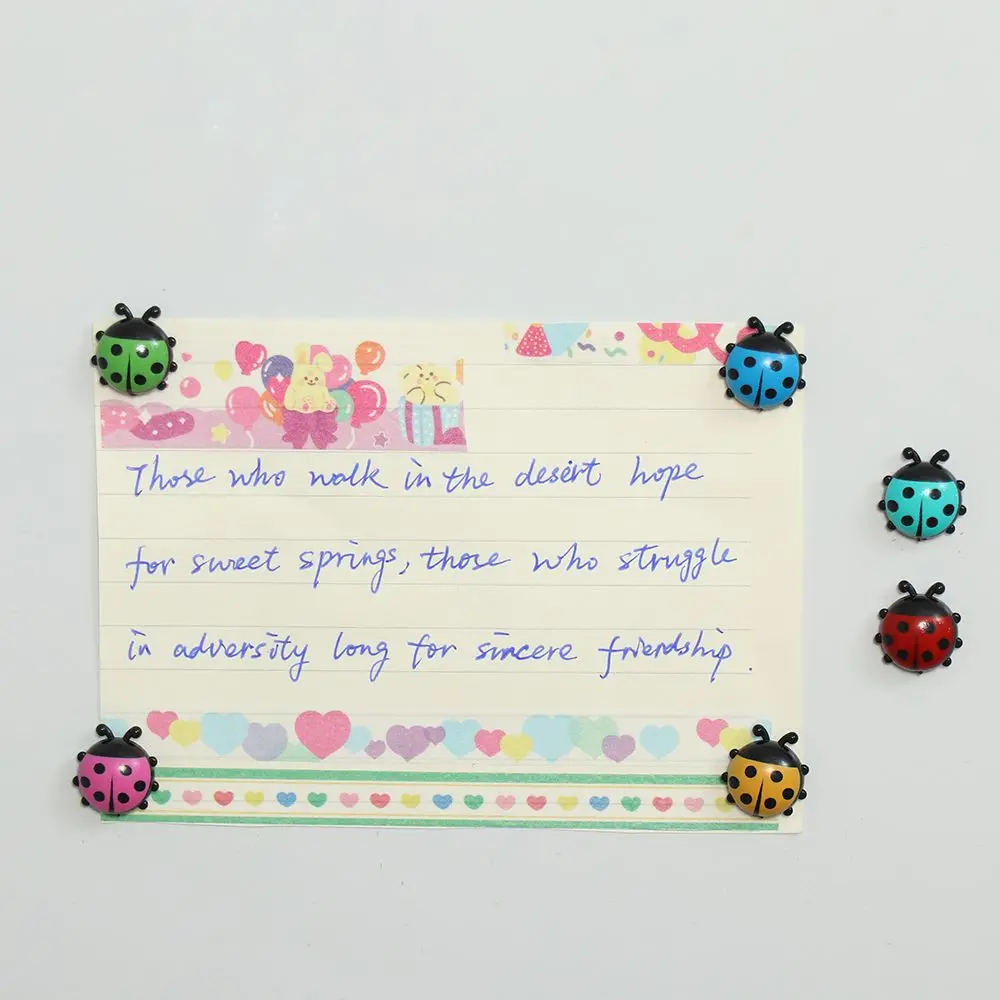 Those who walk in the desert hope
for sweet springs, those who struggle
in adversity long for sincere friendship.